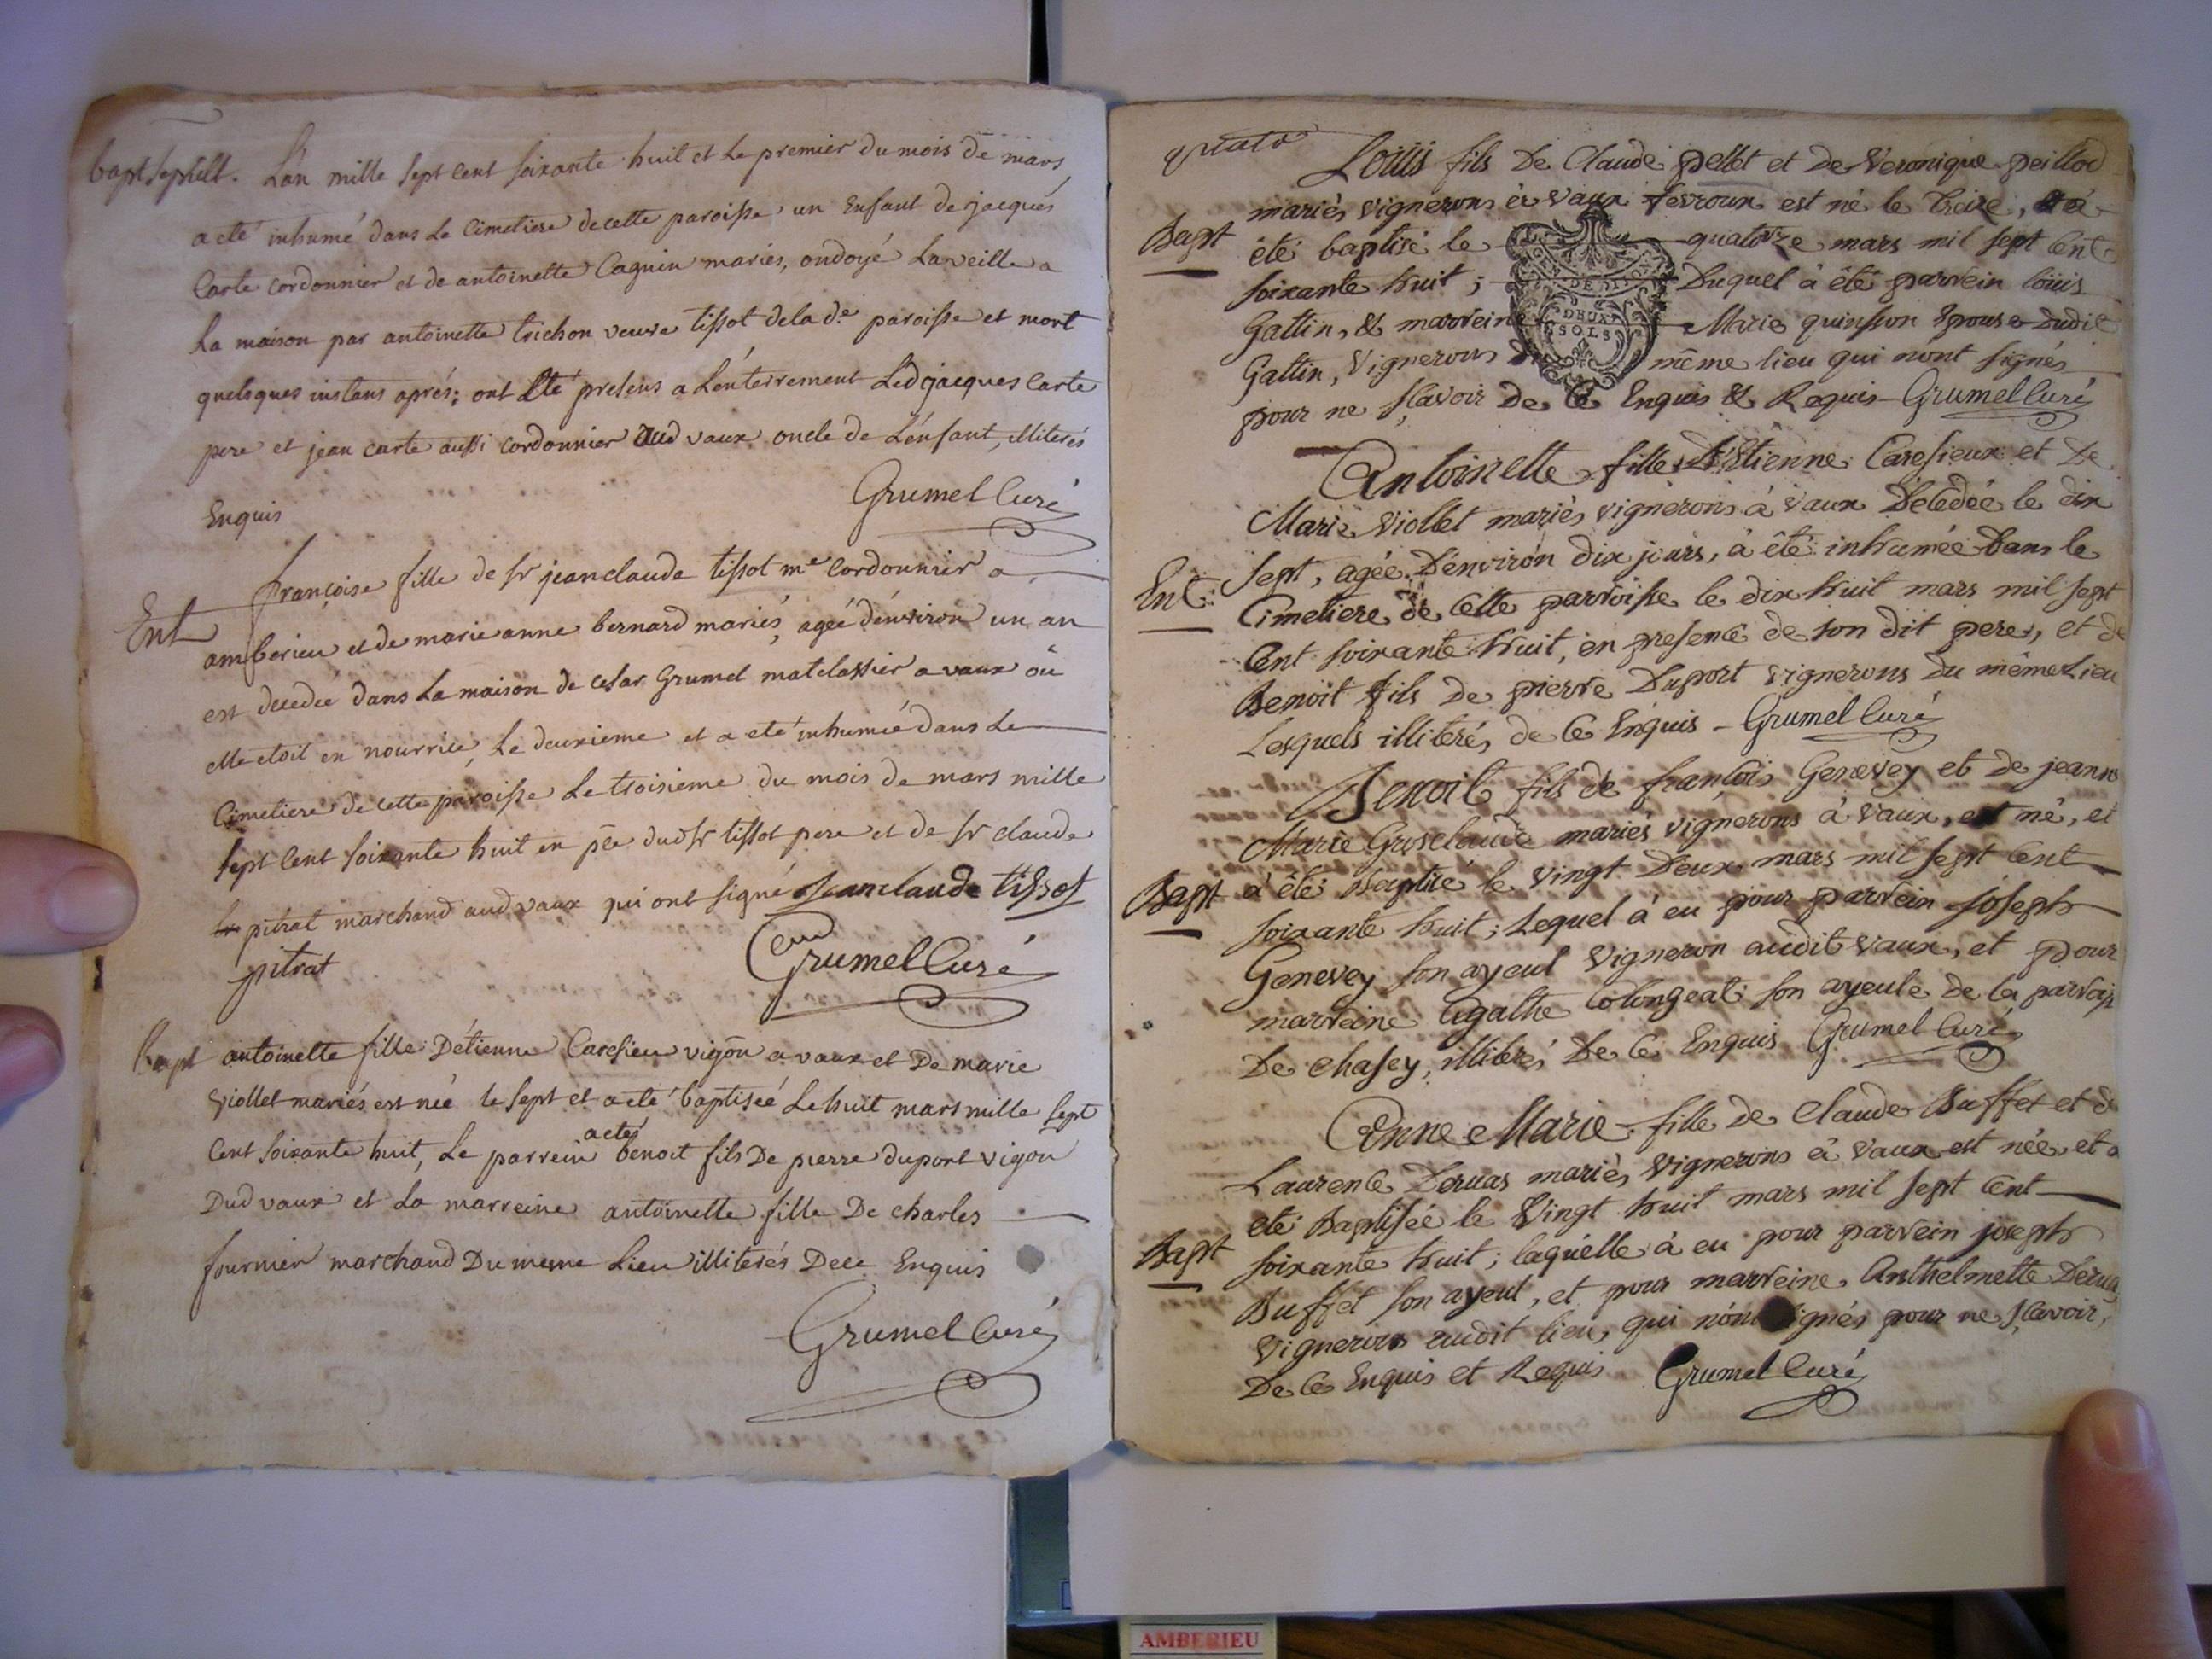 bapt sepult. L'an mille sept cent soixante huit et le premier du mois de mars
a eté inhumé dans le cimetiere de cette paroisse un enfant de jacques
Carte cordonnier et de antoinette Cagnin mariés, ondoyé la veille a
la maison par antoinette trichon veuve tissot de la de paroisse et mort
quelques instans aprés; ont eté presens a l'enterrement led jacques Carte
pere et jean carte aussi cordonnier aud vaux oncle de l'enfant, illiterés
Enquis
Grumel Curé
françoise fille de sr jeanclaude tissot me Cordonnier a
Ent
amberieu et de marie anne bernard mariés, agée d'environ un an
est decedée dans la maison de cesar Grumel matelassier a vaux où
elle etoit en nourrice, le deuxieme et a eté inhumée dans le
Cimetiere de cette paroisse le troisieme du mois de mars mille
sept cent soixante huit en pce dud sr tissot pere et de sr claude
pitrat marchand aud vaux qui ont signé jeanclaude tissot
pitrat
Grumel Curé
Bapt antoinette fille D'étienne Caresieu vigōn a vaux et De marie
Viollet mariés est née le sept et a eté baptisée le huit mars mille sept
Cent soixante huit, le parrein a eté benoit fils De pierre duport vigon
Dud vaux et la marreine antoinette fille De charles
fournier marchand Du meme Lieu illiterés De ce Enquis
Grumel Curé
Loüis fils De Claude pellet et de Veronique peillod
mariés vignerons à vaux fevroux est né le treize, a
Bapt été baptisé le quatorze mars mil sept Cent
soixante huit; Duquel à été parrein loüis
Gattin, & marreine Marie quinson Epouse dudit
Gattin, Vignerons du même lieu qui n'ont signés
pour ne sçavoir De Ce Enquis & Requis Grumel Curé
DEUX
SOLS
Antoinette fille d'Etienne Caresieux et De
Marie Viollet mariés vignerons à vaux Décédée le dix
Ent. sept, agée D'environ dix jours, à été inhumée Dans le
Cimetiere de Cette parroisse le dix huit mars mil sept
Cent soixante huit, en presence de son dit pere, et de
Benoit fils De pierre Duport vignerons Du même Lieu
Lesquels illiterés de Ce Enquis - Grumel Curé
Benoit fils de françois Genevey et de jeanne
Marie Grosclaude mariés vignerons à vaux, est né, et
Bapt à été Baptisé le vingt Deux mars mil sept Cent
soixante huit; Lequel à eu pour parrein joseph
Genevey son ayeul vigneron audit vaux, et pour
marreine Agathe Colongeat son ayeule de la parrois
De Chasey, illiterés De Ce Enquis Grumel Curé
Anne Marie fille de Claude Buffet et d
Laurence Deruas mariés, vignerons à vaux est née, et a
eté Baptisée le Vingt huit mars mil sept Cent
Bapt soixante huit; laquelle à eu pour parrein joseph
Buffet son ayeul, et pour marreine Anthelmette Deruas
Vignerons audit lieu, qui n'ont signés pour ne sçavoir,
De Ce Enquis et Requis Grumel Curé
AMBERIEU